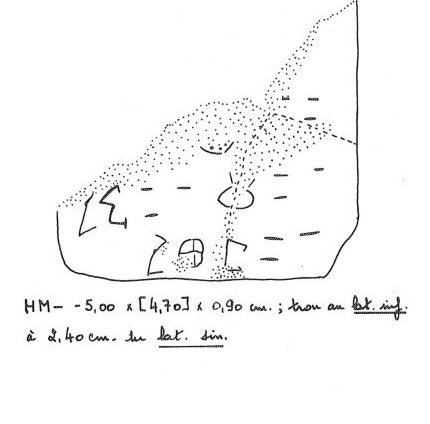 HM - - 5,00 x [4,70] x 0,90 cm. ; trou au lat. inf.
à 2,40 cm. du lat. sin.